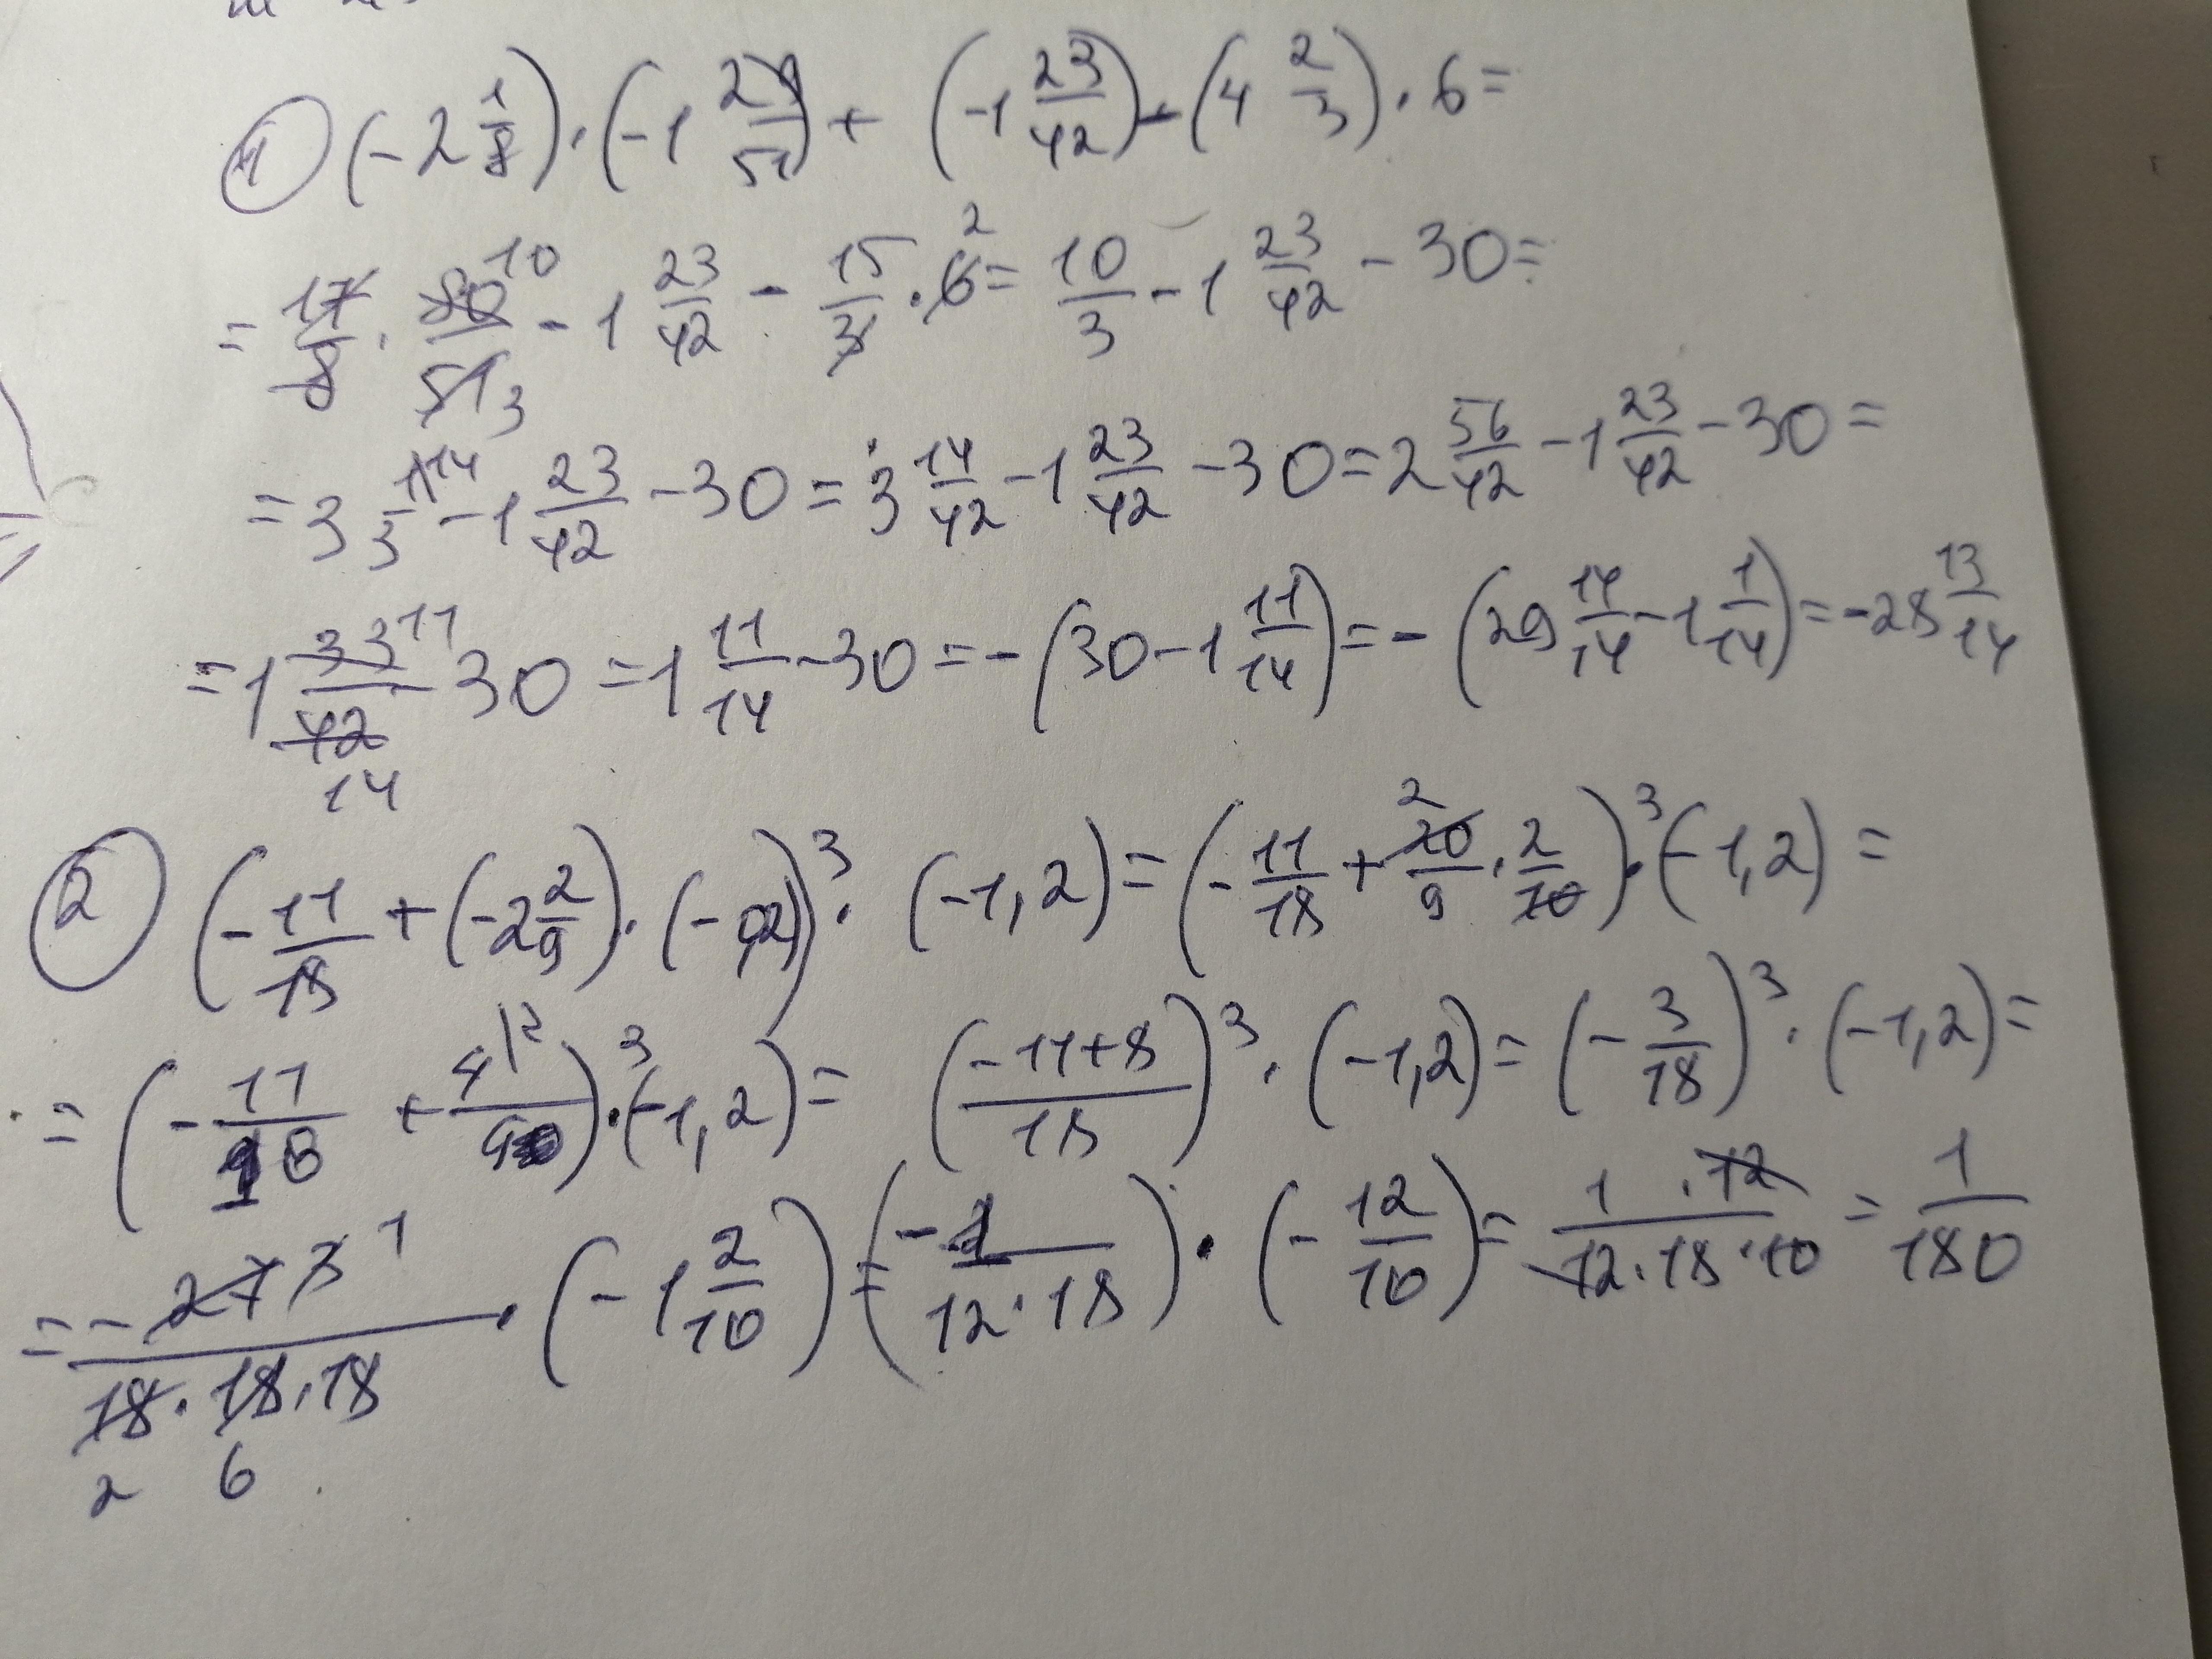 ① (-2 1/8) · (-1 29/51) + (-1 23/42) - (4 2/3) · 6 =
= 17/8 · 80/51 10 3 - 1 23/42 - 15/3 · 6 2 = 10/3 - 1 23/42 - 30 =
= 3 1/3 14 - 1 23/42 - 30 = 3 14/42 - 1 23/42 - 30 = 2 56/42 - 1 23/42 - 30 =
= 1 33/42 11 14 - 30 = 1 11/14 - 30 = - (30 - 1 11/14) = - (29 14/14 - 1 1/14) = -28 13/14
② (- 11/18 + (-2 2/9) · (-0,2))³ · (-1,2) = (- 11/18 + 20/9 2 · 2/10)³ · (-1,2) =
= (- 11/18 + 4/9 |2)³ · (-1,2) = ((-11+8)/18)³ · (-1,2) = (- 3/18)³ · (-1,2) =
= - 27 3 1/18 · 18 · 18 · (-1 2/10) = (-1/12 · 18) · (- 12/10) = 1 · 12/12 · 18 · 10 = 1/180
2 6